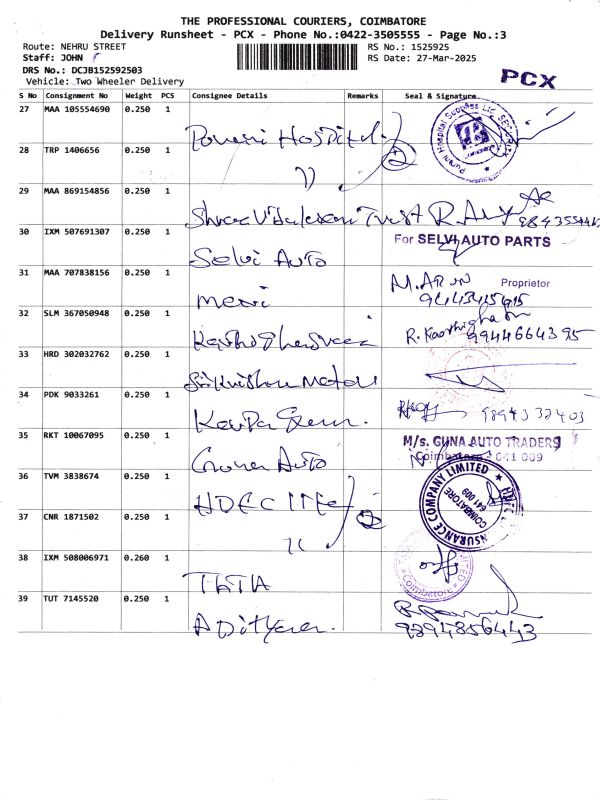 THE PROFESSIONAL COURIERS, COIMBATORE
Delivery Runsheet - PCX - Phone No.:0422-3505555 - Page No.:3
Route: NEHRU STREET RS No.: 1525925
Staff: JOHN RS Date: 27-Mar-2025
DRS No.: DCJB152592503
Vehicle: Two Wheeler Delivery PCX
S No Consignment No Weight PCS Consignee Details Remarks Seal & Signature
27 MAA 105554690 0.250 1
28 TRP 1406656 0.250 1
29 MAA 869154856 0.250 1
30 IXM 507691307 0.250 1 Selvi Auto For SELVI AUTO PARTS
31 MAA 707838156 0.250 1 M. ARUN Proprietor
32 SLM 367050948 0.250 1 R. 9944664395
33 HRD 302032762 0.250 1
34 PDK 9033261 0.250 1 9894332403
35 RKT 10067095 0.250 1 Guna Auto M/s. GUNA AUTO TRADERS
Coimbatore 641 009
36 TVM 3838674 0.250 1 HDFC Life INSURANCE COMPANY LIMITED COIMBATORE 641 009
37 CNR 1871502 0.250 1
38 IXM 508006971 0.260 1 TATA Coimbatore
39 TUT 7145520 0.250 1